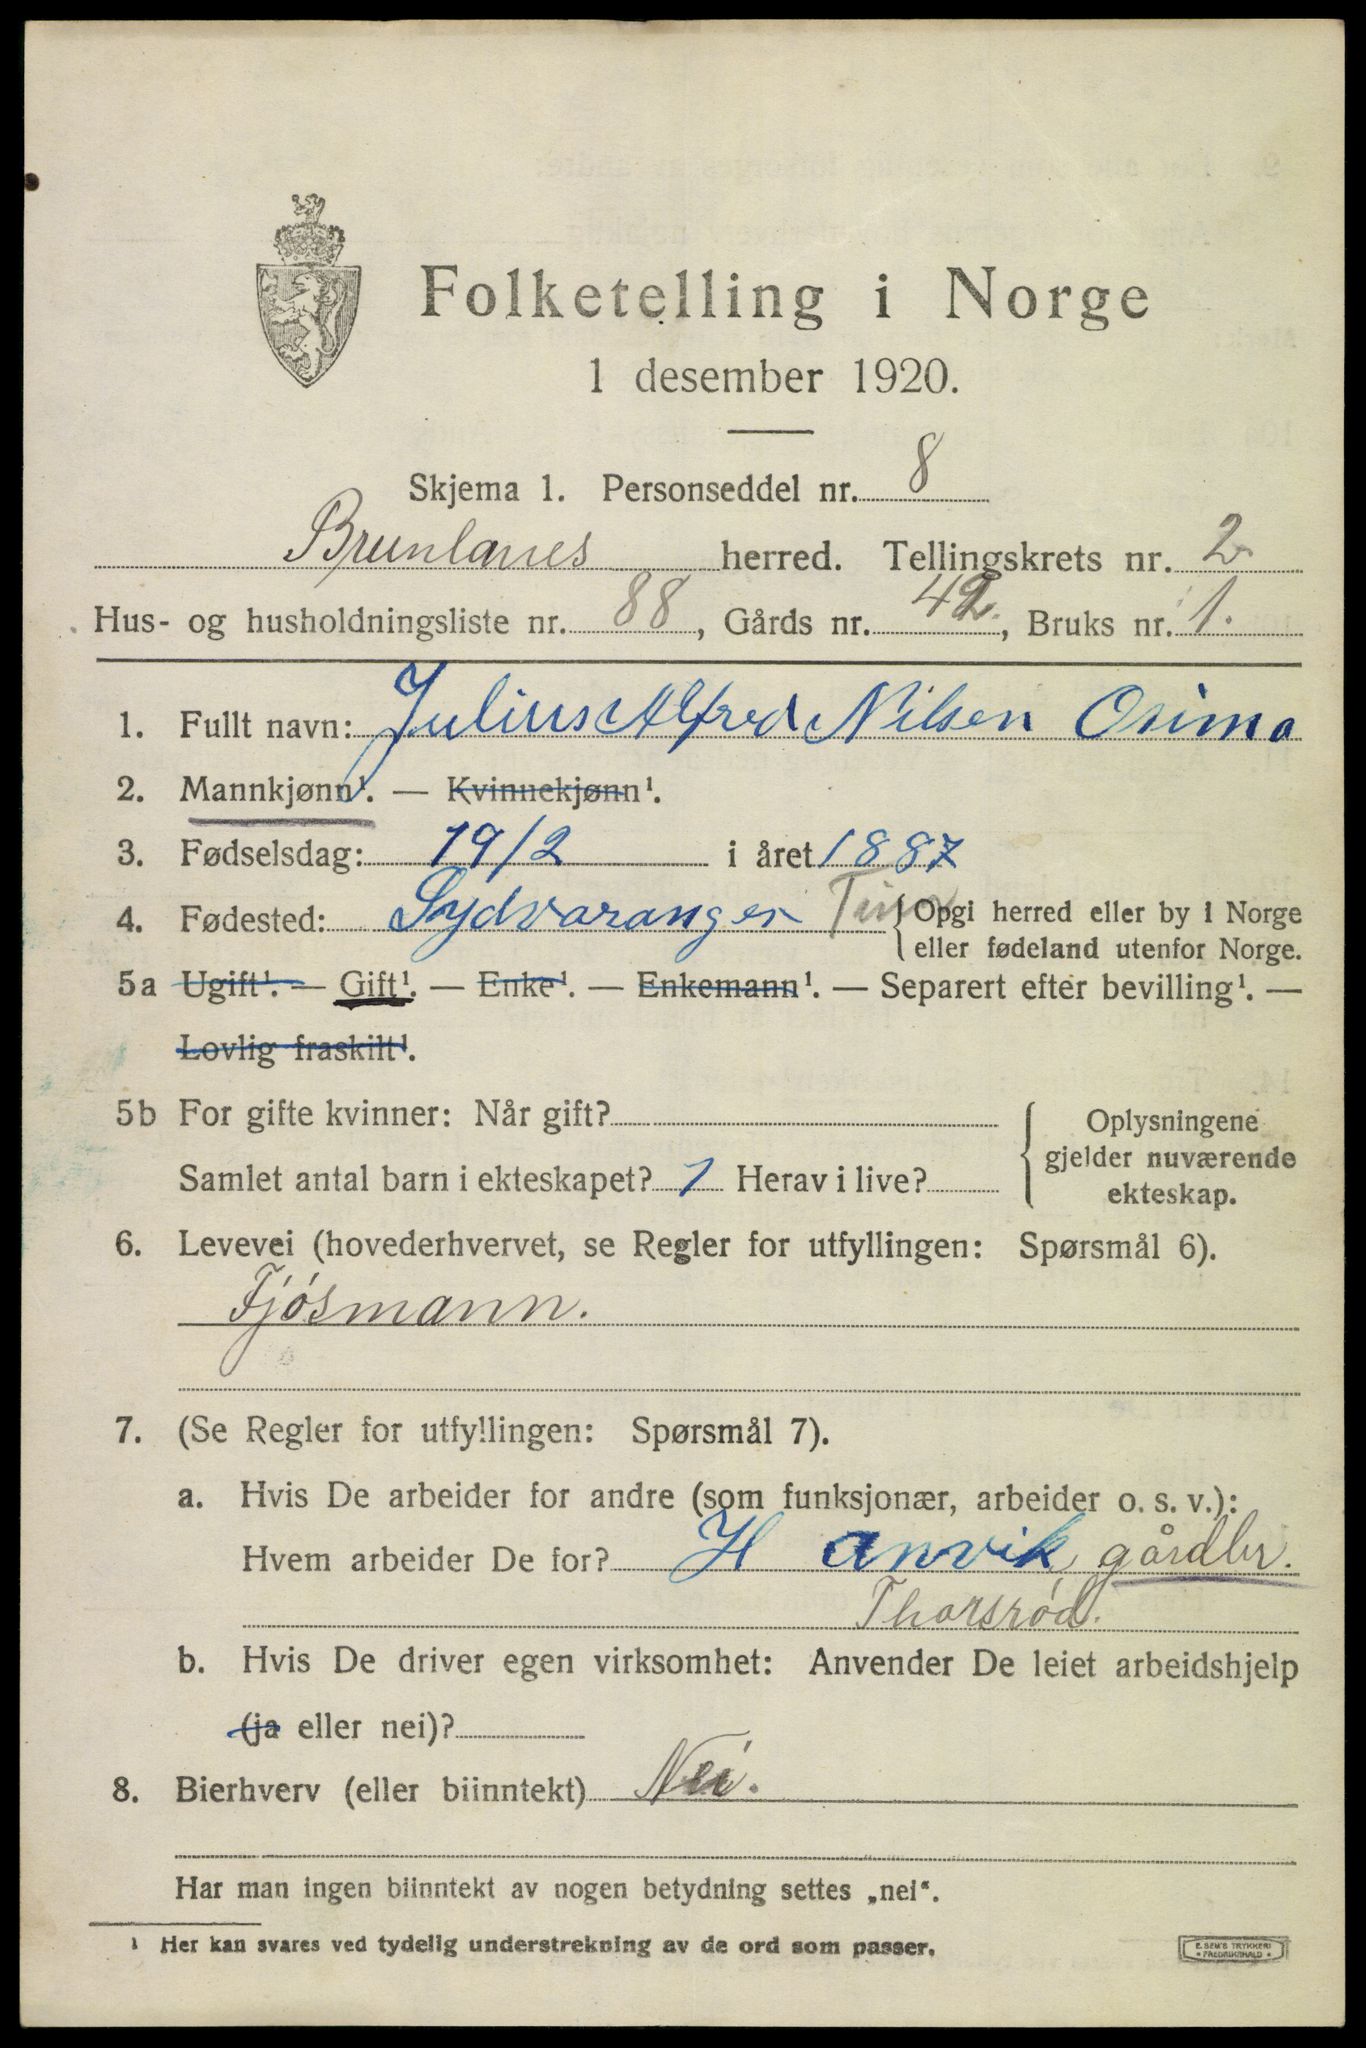 Folketelling i Norge
1 desember 1920.
Skjema 1. Personseddel nr. 8
Brunlanes herred. Tellingskrets nr. 2
Hus- og husholdningsliste nr. 88, Gårds nr. 42, Bruks nr. 1.
1. Fullt navn: Julius Alfred Nilsen Osima
2. Mannkjønn¹. — Kvinnekjønn¹.
3. Fødselsdag: 19/2 i året 1887
4. Fødested: Sydvaranger {Opgi herred eller by i Norge
eller fødeland utenfor Norge.
5a Ugift¹. — Gift¹. — Enke¹. — Enkemann¹. — Separert efter bevilling¹. —
Lovlig fraskilt¹.
5b For gifte kvinner: Når gift?
Samlet antal barn i ekteskapet? 1 Herav i live?
{Oplysningene
gjelder nuværende
ekteskap.
6. Levevei (hovederhvervet, se Regler for utfyllingen: Spørsmål 6).
Fjósmann.
7. (Se Regler for utfyllingen: Spørsmål 7).
a. Hvis De arbeider for andre (som funksjonær, arbeider o. s. v.):
Hvem arbeider De for? H anvik gårdbr.
Thorsrød.
b. Hvis De driver egen virksomhet: Anvender De leiet arbeidshjelp
(ja eller nei)?
8. Bierhverv (eller biinntekt) Nei.
Har man ingen biinntekt av nogen betydning settes „nei“.
¹ Her kan svares ved tydelig understrekning av de ord som passer.
E. SEM'S TRYKKERI
• FREDRIKSHALD •